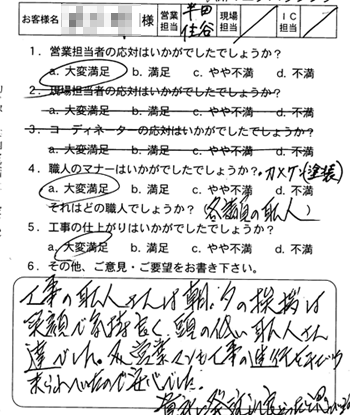 お客様名 様 営業担当 平田 住谷 現場担当 IC担当
1. 営業担当者の応対はいかがでしたでしょうか?
a. 大変満足 b. 満足 c. やや不満 d. 不満
2. 現場担当者の応対はいかがでしたでしょうか?
a. 大変満足 b. 満足 c. やや不満 d. 不満
3. コーディネーターの応対はいかがでしたでしょうか?
a. 大変満足 b. 満足 c. やや不満 d. 不満
4. 職人のマナーはいかがでしたでしょうか? カメケン(塗装)
a. 大変満足 b. 満足 c. やや不満 d. 不満
それはどの職人でしょうか? 笑顔の職人
5. 工事の仕上がりはいかがでしたでしょうか?
a. 大変満足 b. 満足 c. やや不満 d. 不満
6. その他、ご意見・ご要望をお書き下さい。
工事の職人さんは朝、夕の挨拶は
笑顔で気持良く、頭の低い職人さん
達でした。又、営業マンも工事の進行を
来られていたので安心でした。